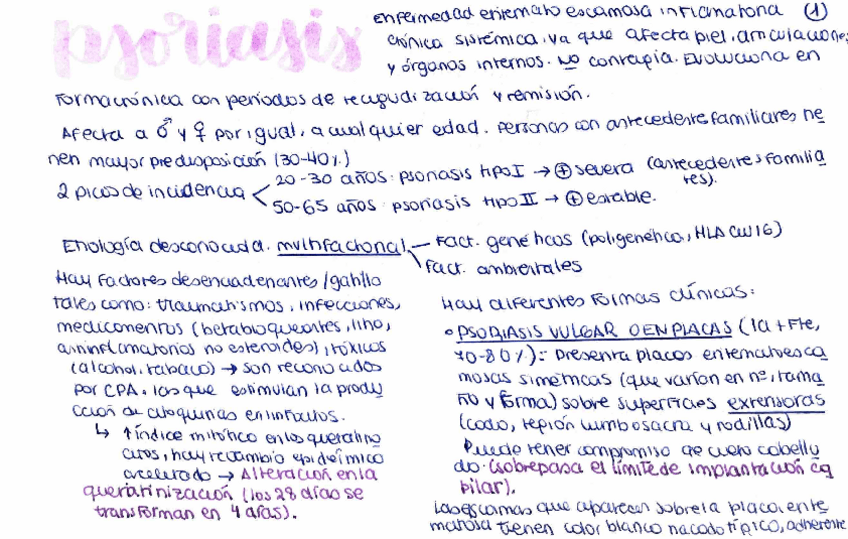 psoriasis
enfermedad eritemato escamosa inflamatoria (1)
crónica sistémica, ya que afecta piel, articulaciones
y órganos internos. NO contagia. Evoluciona en
forma crónica con períodos de reagudización y remisión.
Afecta a ♂ y ♀ por igual, a cualquier edad. Personas con antecedente familiares tie
nen mayor predisposición (30-40%)
2 picos de incidencia < 20-30 años: psoriasis tipo I → ⊕ severa (antecedentes familia
res).
50-65 años: psoriasis tipo II → ⊕ estable.
Etiología desconocida. multifactorial - Fact. genéticos (poligenético, HLA CW16)
Fact. ambientales
Hay factores desencadenantes/gatillo
tales como: traumatismos, infecciones,
medicamentos (betabloqueantes, litio,
antiinflamatorios no esteroides), tóxicos
(alcohol, tabaco) → son reconocidos
por CPA, los que estimulan la produ
cción de citoquinas en linfocitos.
↳ ↑ índice mitótico en los queratino
citos, hay recambio epidérmico
acelerado → Alteración en la
queratinización (los 28 días se
transforman en 4 días).
Hay diferentes formas clínicas:
° PSORIASIS VULGAR O EN PLACAS (la + fte,
70-80%): Presenta placas eritematoesca
mosas simétricas (que varían en nº, tama
ño y forma) sobre superficies extensoras
(codo, región lumbosacra y rodillas)
Puede tener compromiso de cuero cabellu
do. (sobrepasa el límite de implantación
pilar).
Las escamas que aparecen sobre la placa erite
matosa tienen color blanco nacado típico, adherente